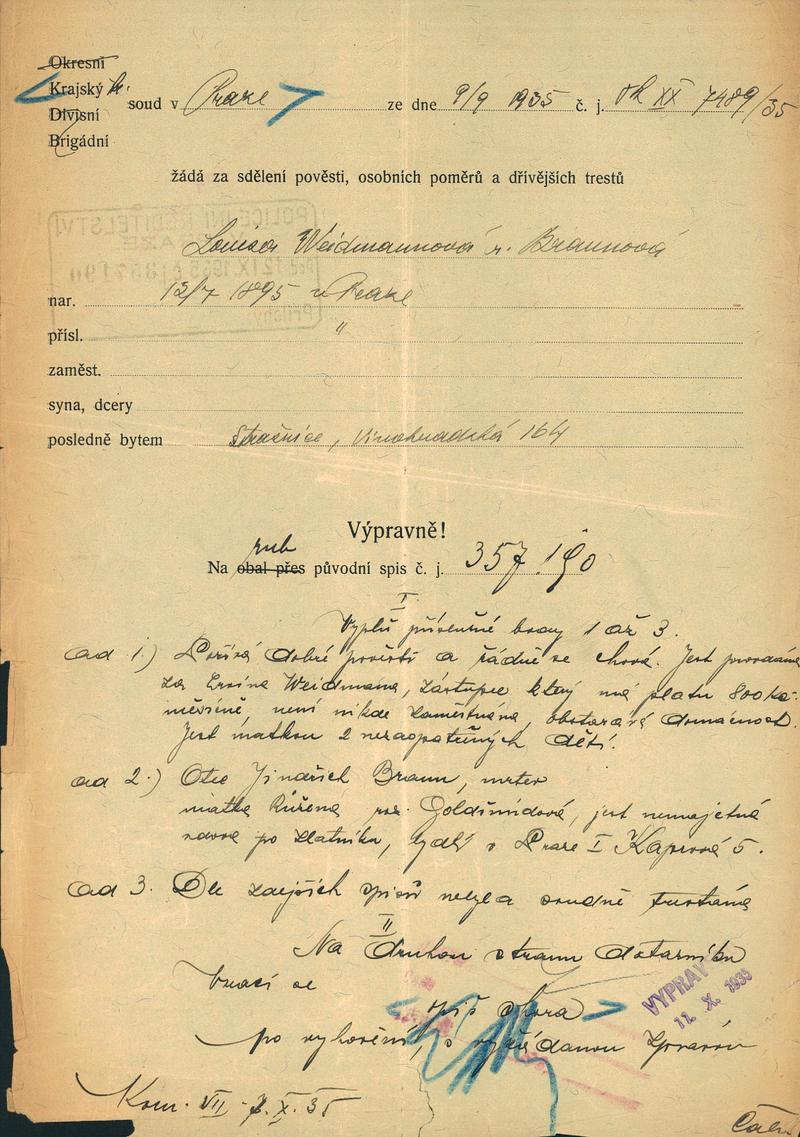 Okresní
Krajský tr.
Divisní
Brigádní
soud v Praze ze dne 9/9 1935 č. j. Ok XX 7489/35
žádá za sdělení pověsti, osobních poměrů a dřívějších trestů
POLICEJNÍ ŘEDITELSTVÍ
Louisa Weidmannová r. Braunová
nar. 12/7 1895 v Praze
přísl. "
zaměst.
syna, dcery
posledně bytem Strašnice, Vinohradská 164
Výpravně!
rub
Na obal přes původní spis č. j. 357.190
I
Vyplň příslušné body 1 až 3.
ad 1.) Požívá dobré pověsti a řádně se chová. Jest provdána
za Ervína Weidmanna, zástupce který má platu 800 Kč
měsíčně, není nikde zaměstnána, obstarává domácnost.
Jest matkou 2 nezaopatřených dětí.
ad 2.) Otec Jindřich Braun, mrtev
matka Růžena roz. Goldšmídová, jest nemajetná
vdova po zlatníku, bydlí v Praze I Kaprová 5.
ad 3. Dle zdejších spisů nebyla soudně trestána
II
Na druhou stranu dotazníku
Vrací se
spis shora
po vyhovění, s vyžádanou zprávou
VYPRAV
11. X. 1935
Kom. VII - 7. X. 35